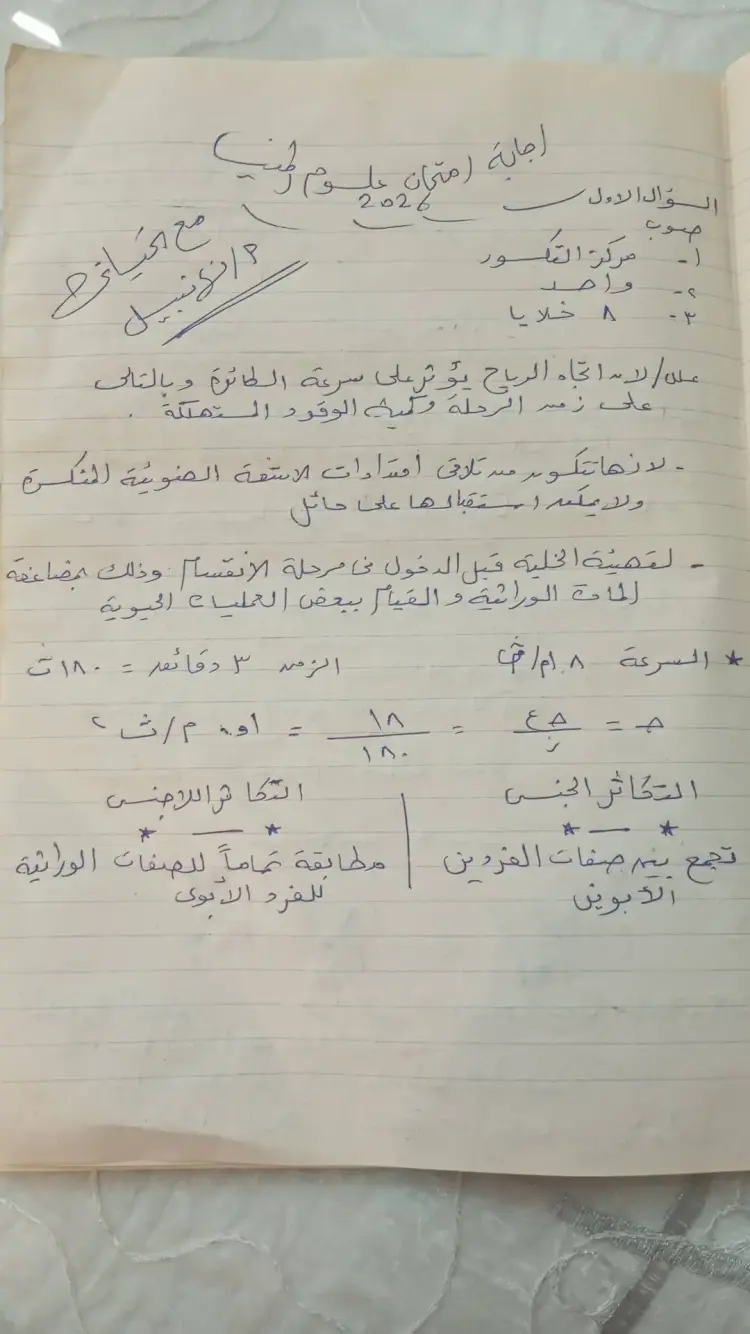 اجابة امتحان علوم المنيا
2026
السؤال الاول
صوب
مع تحياتى
م/ ... نبيل
١- مركز التكور
٢- واحد
٣- ٨ خلايا
علل/ لان اتجاه الرياح يؤثر على سرعة الطائرة وبالتالى
على زمن الرحلة وكمية الوقود المستهلكة .
- لانها تتكون من تلاقى امتدادات الاشعة الضوئية المنكسرة
ولا يمكن استقبالها على حائل
- لتهيئة الخلية قبل الدخول فى مرحلة الانقسام وذلك بمضاعفة
المادة الوراثية والقيام ببعض العمليات الحيوية
* السرعة ١٨ م/ث الزمن ٣ دقائق = ١٨٠ ث
جـ = ∆ع / ز = ١٨ / ١٨٠ = ٠,١ م/ث٢
التكاثر الجنسى التكاثر اللاجنسى
* — * * — *
تجمع بين صفات الفردين مطابقة تماماً للصفات الوراثية
الأبوين للفرد الأبوى